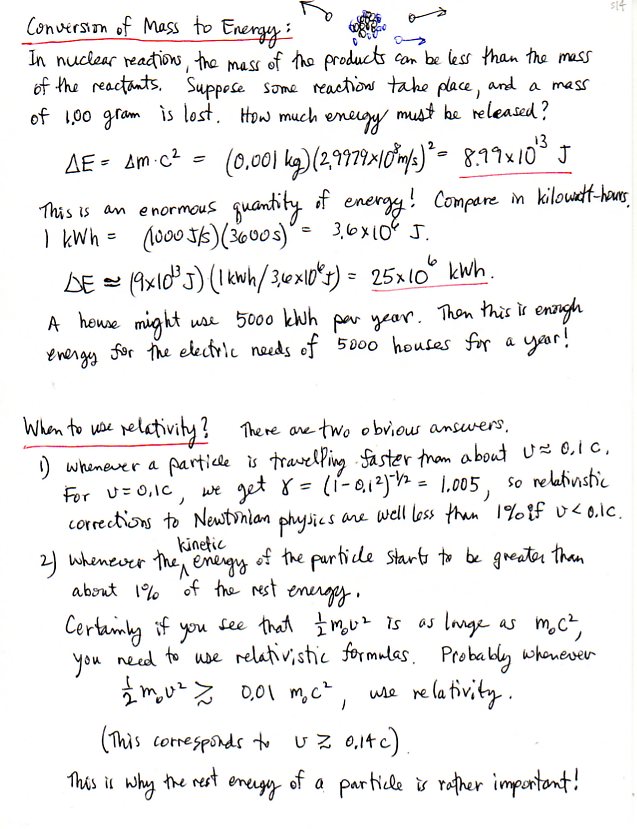 S14
Conversion of Mass to Energy:
In nuclear reactions, the mass of the products can be less than the mass
of the reactants. Suppose some reactions take place, and a mass
of 1.00 gram is lost. How much energy must be released?
ΔE = Δm·c² = (0.001 kg)(2.9979×10⁸m/s)² = 8.99×10¹³ J
This is an enormous quantity of energy! Compare in kilowatt-hours.
1 kWh = (1000 J/s)(3600s) = 3.6×10⁶ J.
ΔE ≃ (9×10¹³J)(1kWh/3.6×10⁶J) = 25×10⁶ kWh.
A house might use 5000 kWh per year. Then this is enough
energy for the electric needs of 5000 houses for a year!
When to use relativity? There are two obvious answers.
1) whenever a particle is travelling faster than about υ≈0.1c.
For υ=0.1c, we get γ = (1-0.1²)^-1/2 = 1.005, so relativistic
corrections to Newtonian physics are well less than 1% if υ<0.1c.
2) whenever the kinetic energy of the particle starts to be greater than
about 1% of the rest energy.
Certainly if you see that ½m₀υ² is as large as m₀c²,
you need to use relativistic formulas. Probably whenever
½m₀υ² ≳ 0.01 m₀c², use relativity.
(This corresponds to υ ≳ 0.14c)
This is why the rest energy of a particle is rather important!